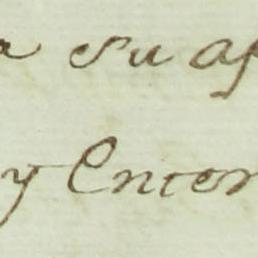 a su ap
y Enter